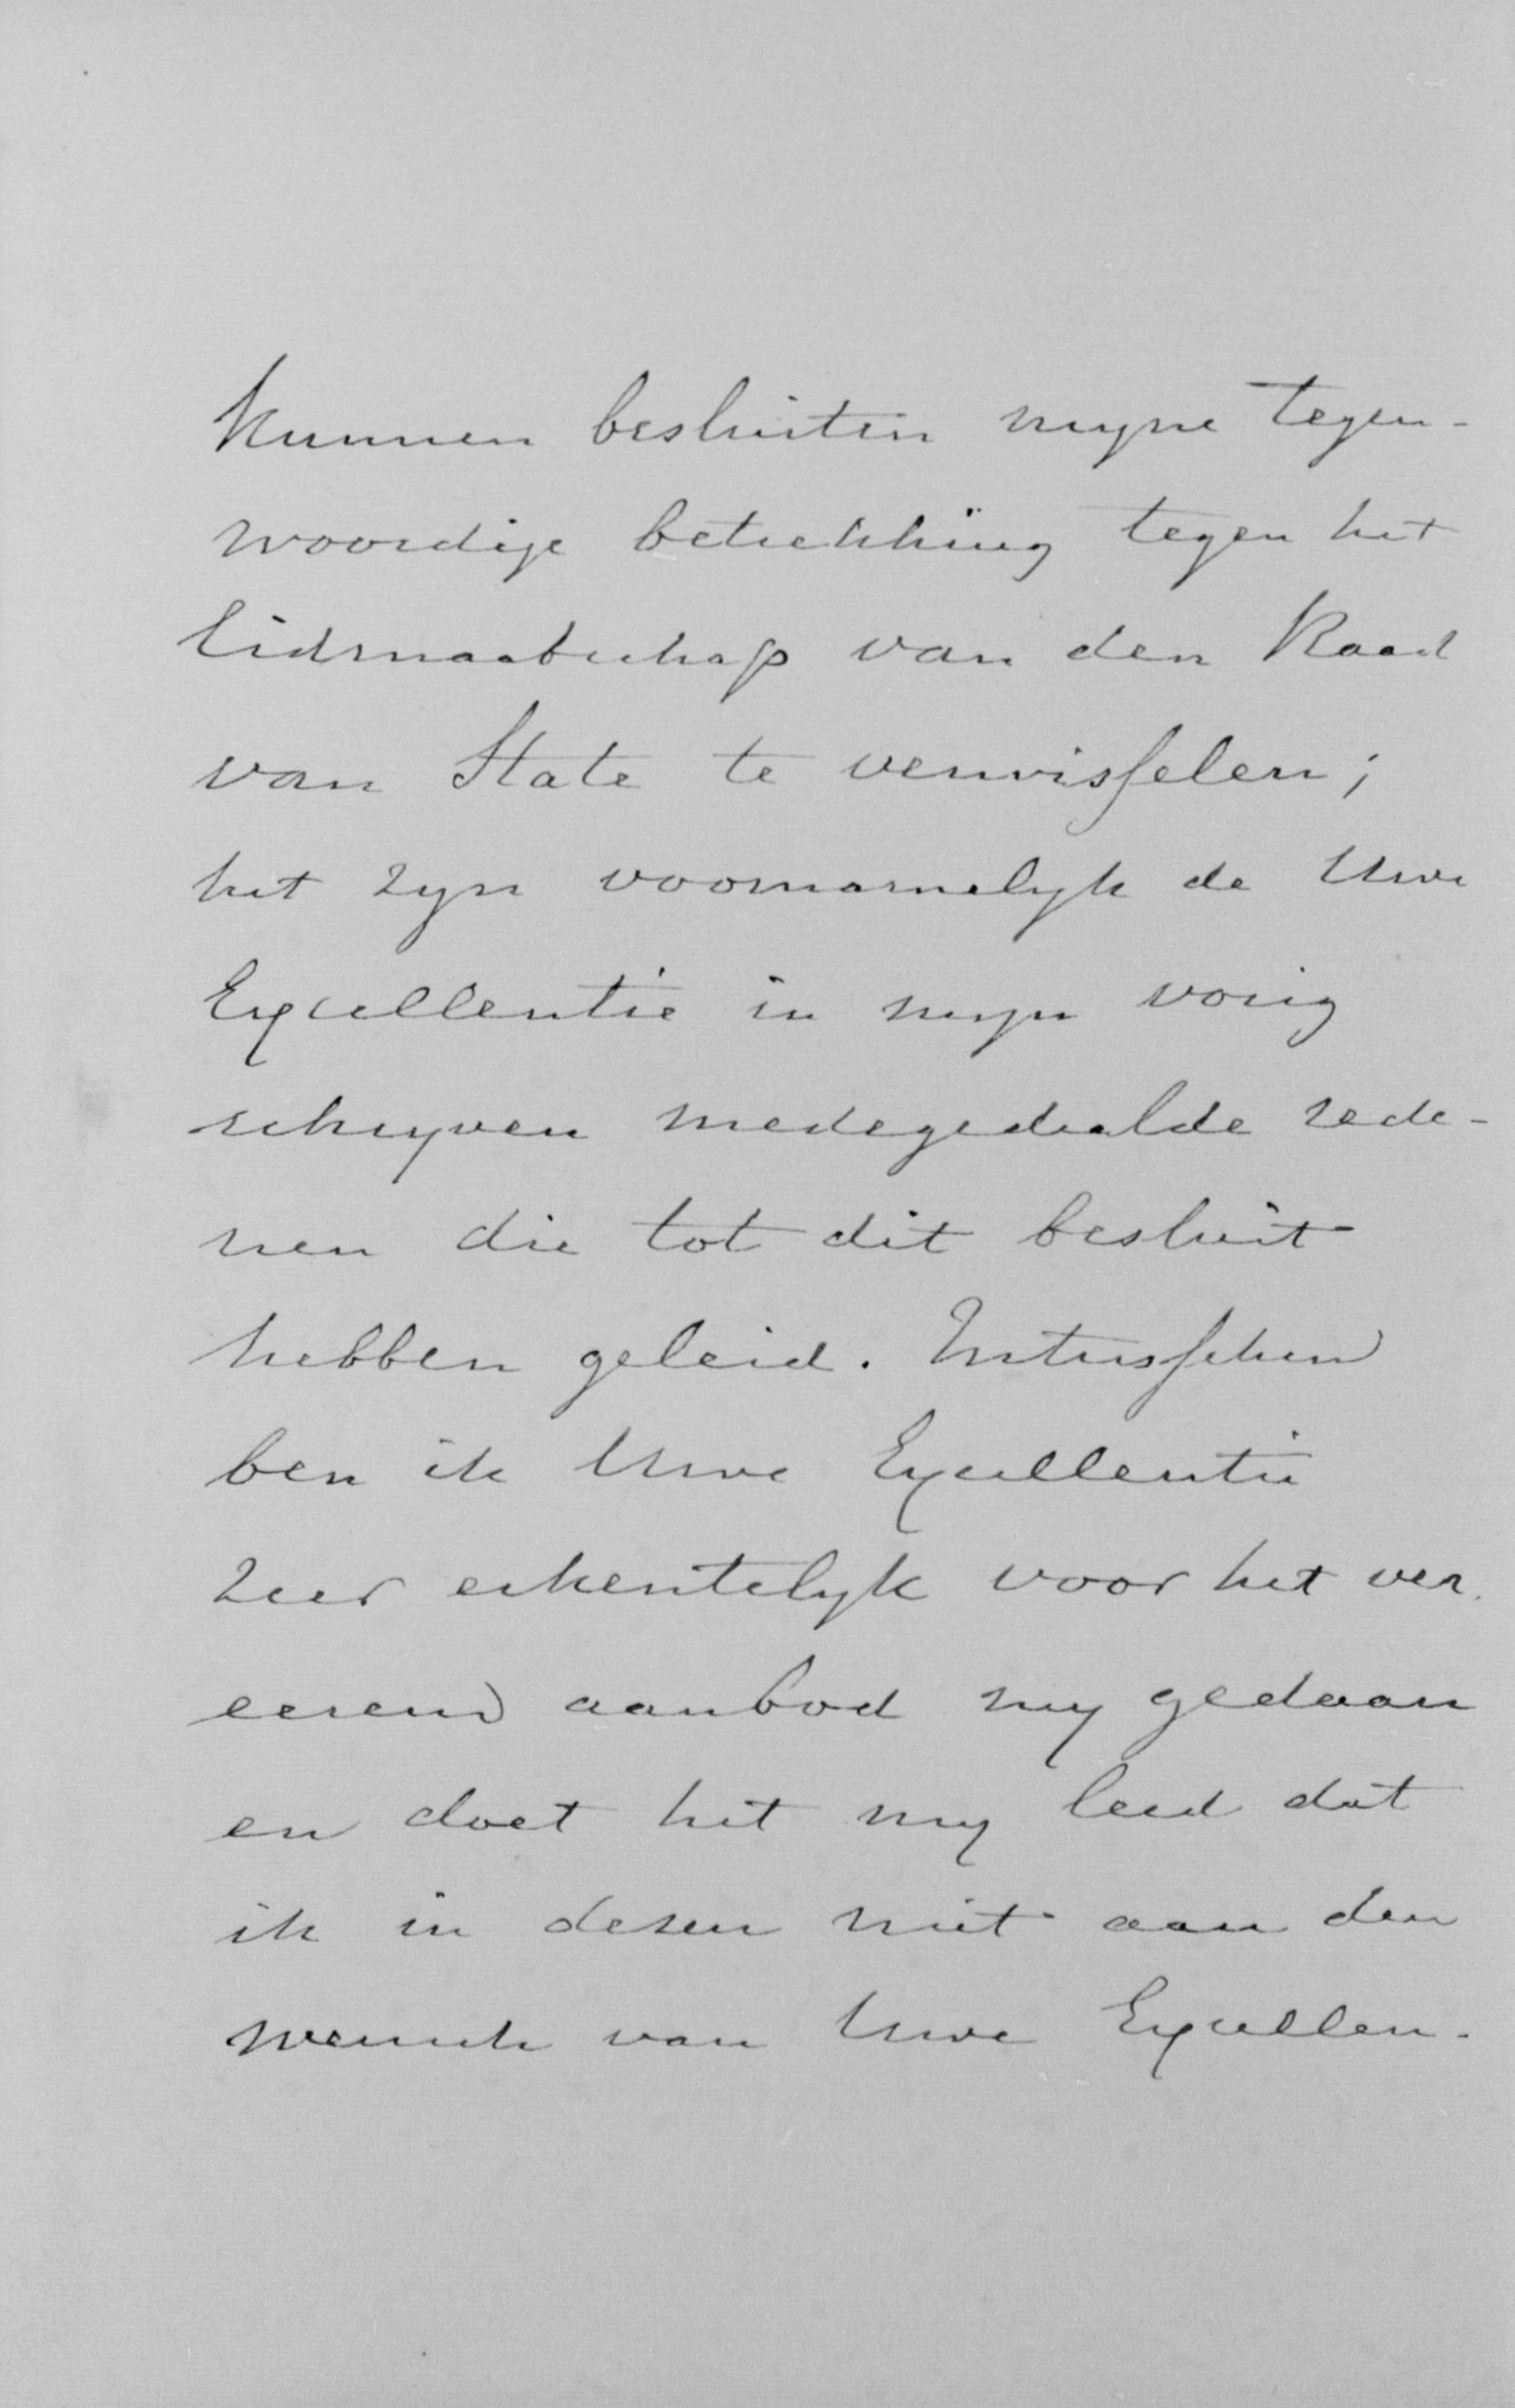 kunnen besluiten myne tegen-
woordige betrekking tegen het
lidmaatschap van den Raad
van State te verwisselen;
het zyn voornamelyk de Uwe
Excellentie in myn vorig
schryven medegedeelde rede-
nen die tot dit besluit
hebben geleid. Intusschen
ben ik Uwe Excellentie
zeer erkentelyk voor het ver-
eerend aanbod my gedaan
en doet het my leed dat
ik in dezen niet aan den
wensch van Uwe Excellen-